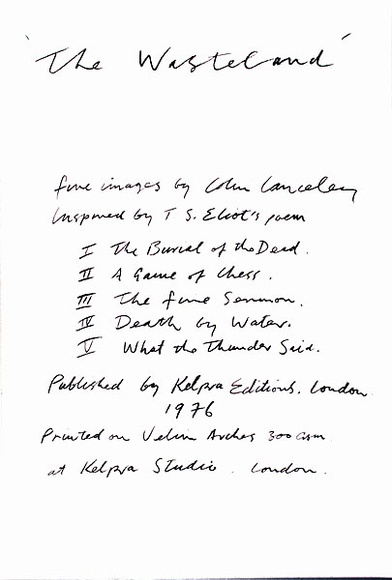 'The Wasteland'
five images by Colin Lanceley
Inspired by T S. Eliot's poem
I The Burial of the Dead.
II A Game of Chess.
III The fire Sermon.
IV Death by Water.
V What the Thunder Said.
Published by Kelpra Editions. London.
1976
Printed on Velin Arches 300 gsm.
at Kelpra Studio. London.